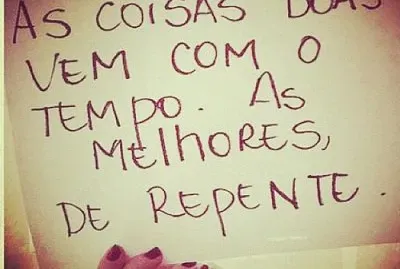 AS COISAS BOAS
VEM COM O
TEMPO. AS
MELHORES,
DE REPENTE.